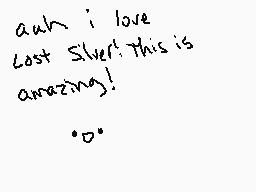 auh i love
Lost Silver! This is
amazing!